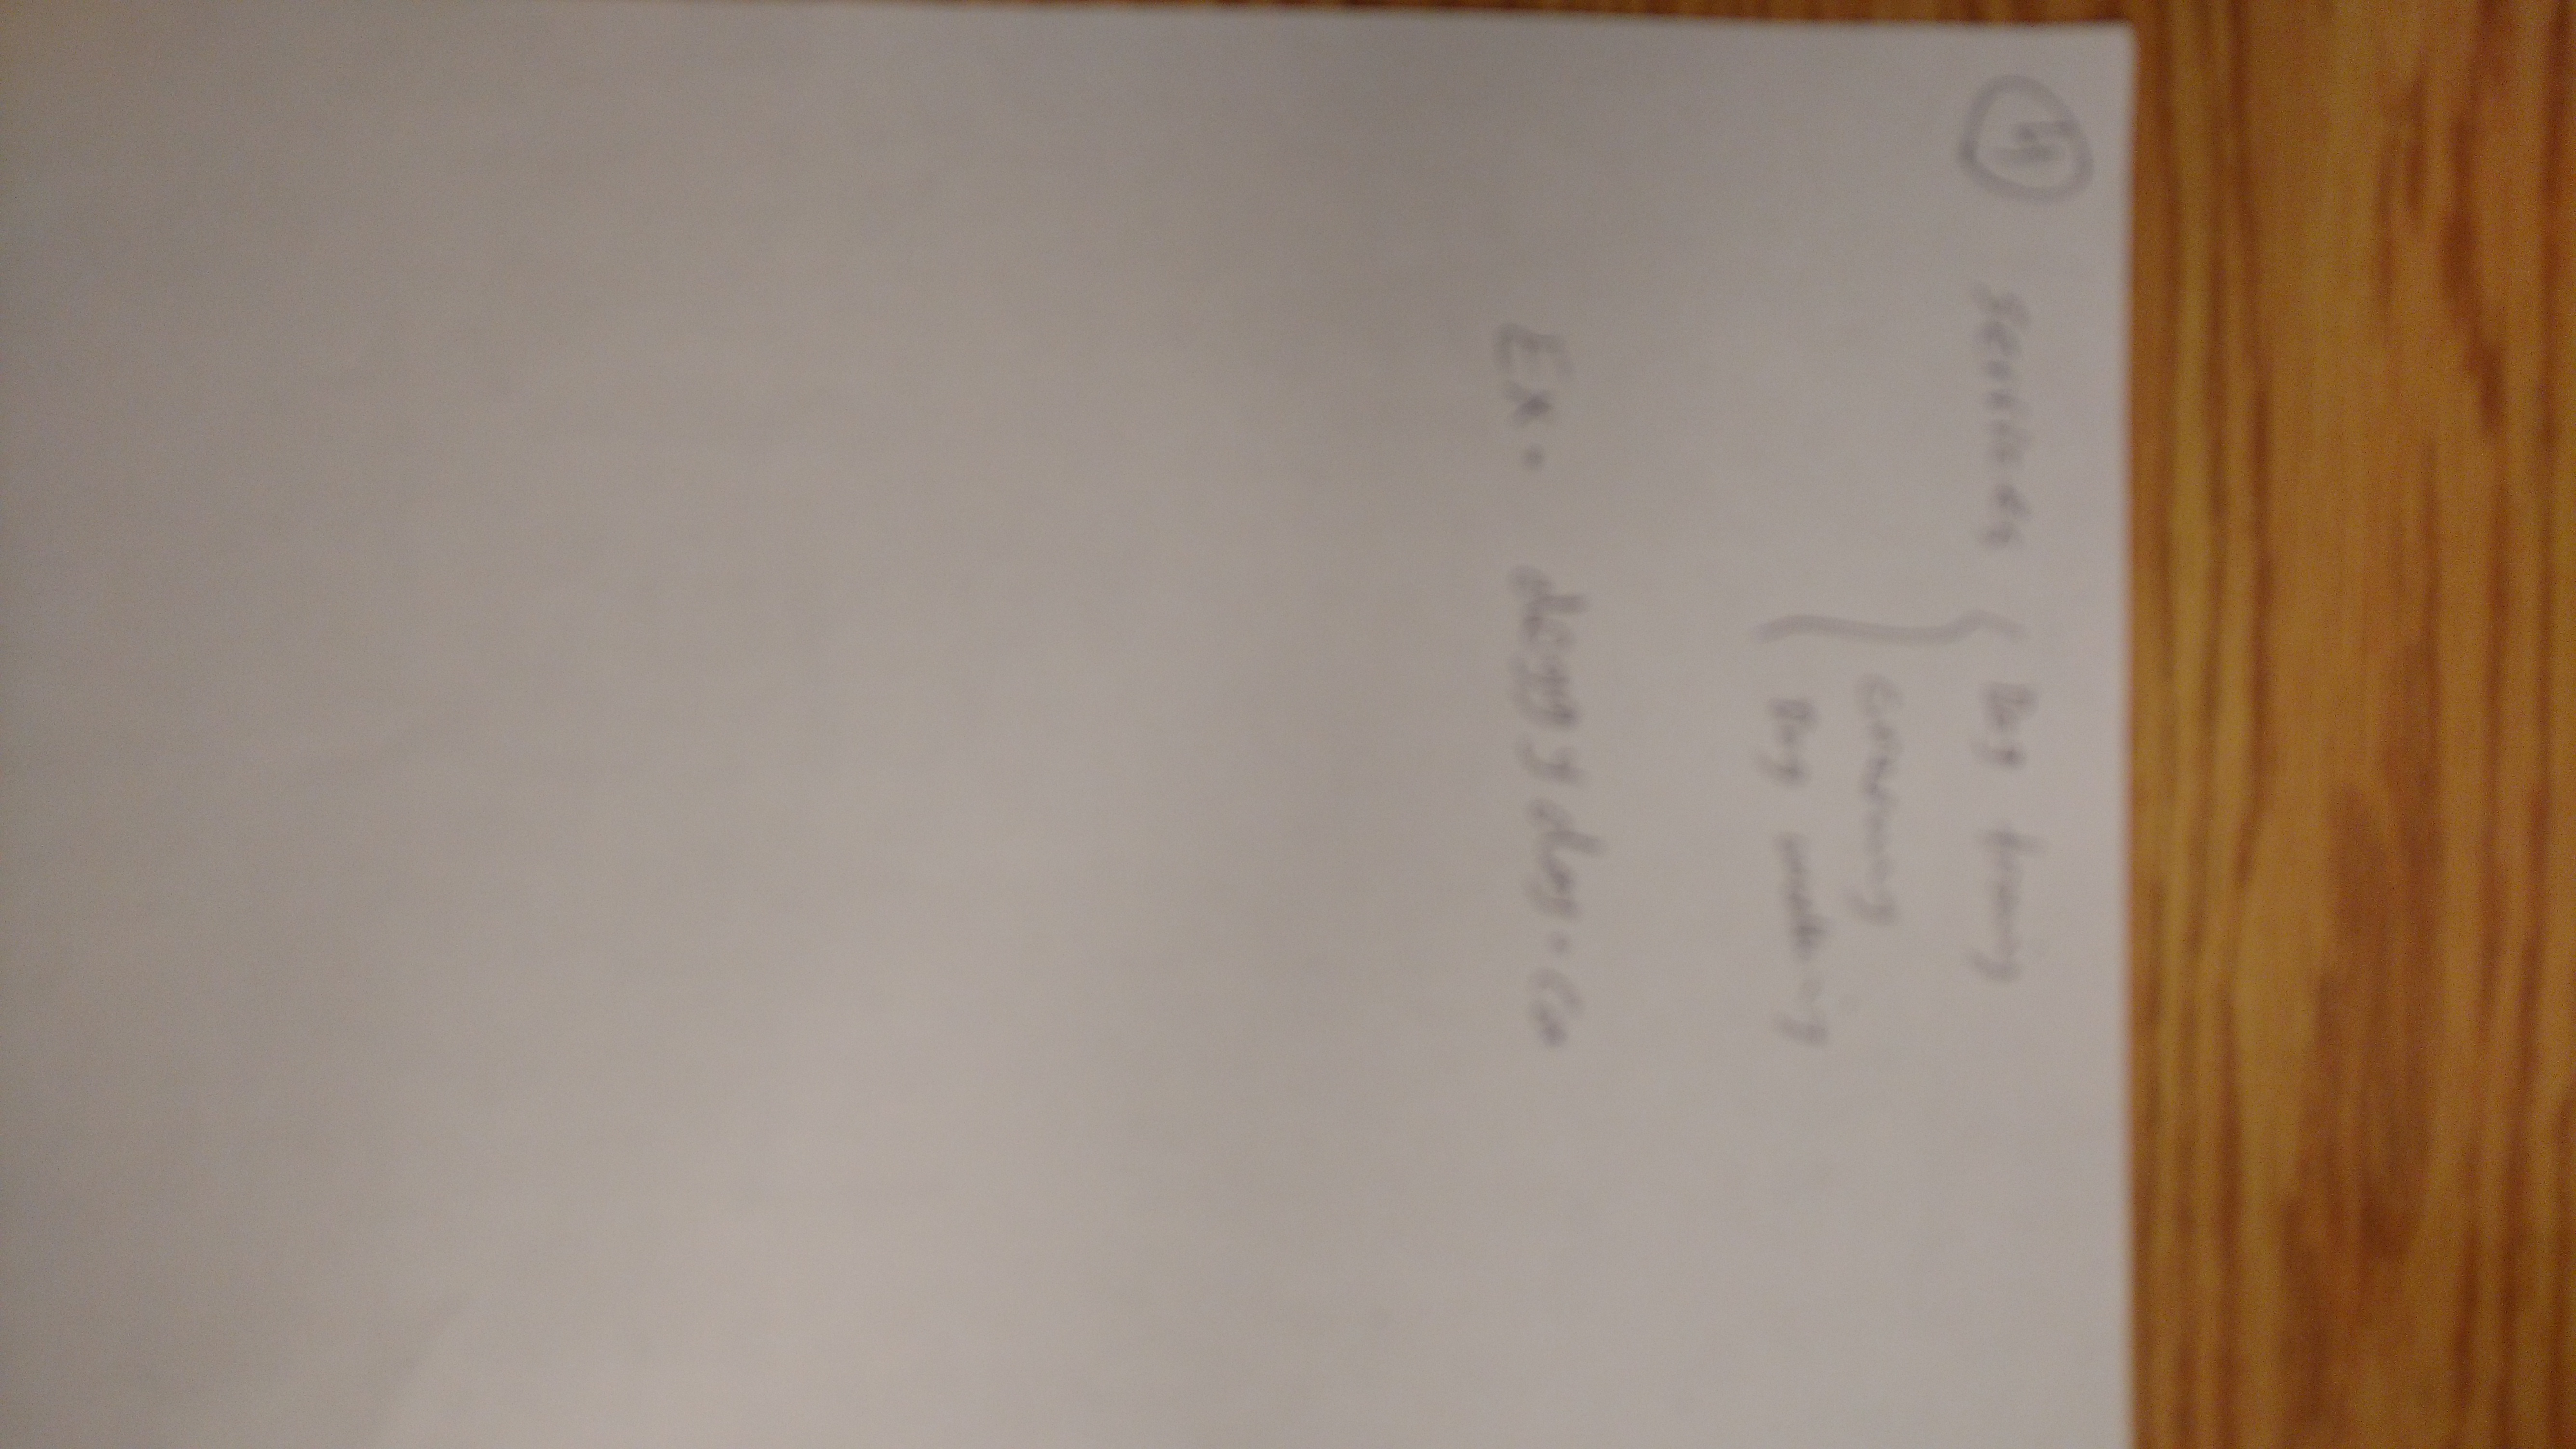 4 services { Dog traning
Grooming
Dog walking
Ex. doggyday.ca